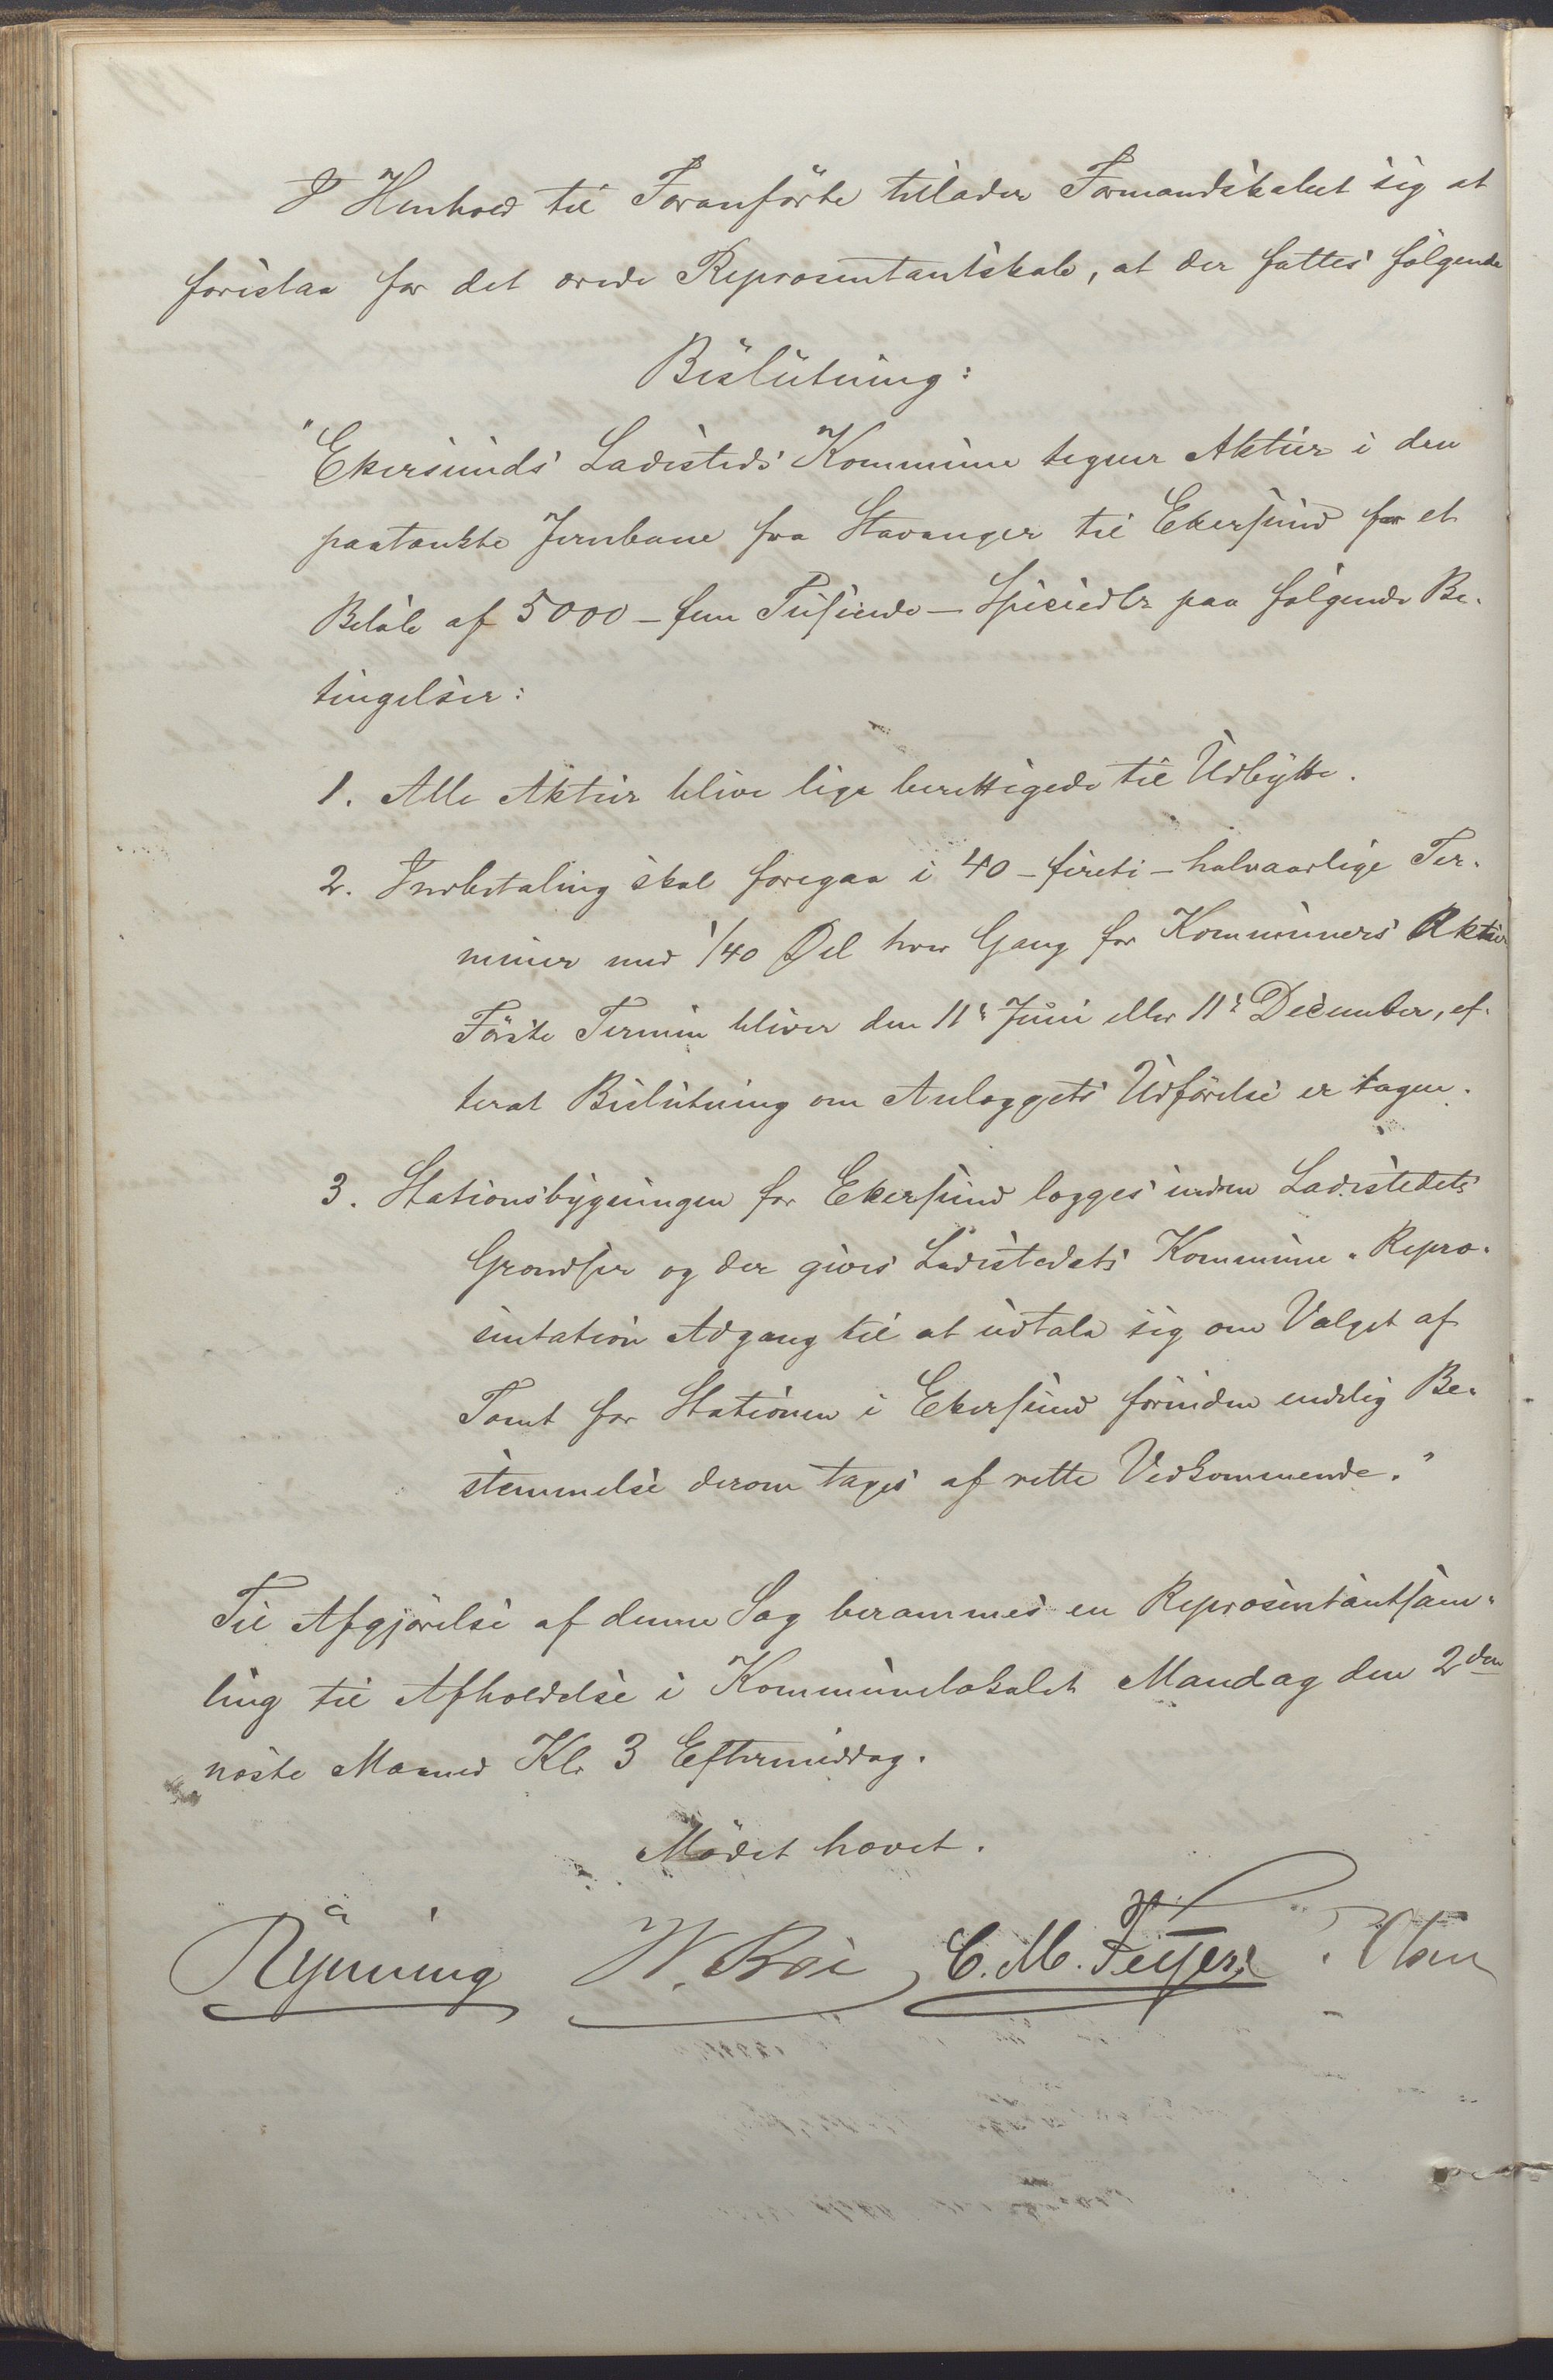 I Henhold til Foranførte tillader Formandskabet sig at
foreslaa for det ærede Repræsentantskab, at der fattes følgende
Beslutning:
"Ekersunds Ladesteds Kommune tegner Aktier i den
paatænkte Jernbane fra Stavanger til Ekersund for et
Beløb af 5000 - fem Tusende - Speciedlr paa følgende Be-
tingelser:
1. Alle Aktier blive lige berettigede til Udbytte.
2. Indbetaling skal foregaa i 40 - fireti - halvaarlige Ter-
miner med 1/40 Del hver Gang for Kommuners Aktier
Første Termin bliver den 11te Juni eller 11te December, ef-
terat Beslutning om Anlæggets Udførelse er tagen.
3. Stationsbygningen for Ekersund lægges inden Ladestedets
Grændser og der gives Ladestedets Kommune-Repræ-
sentation Adgang til at udtale sig om Valget af
Tomt for Stationen i Ekersund førinden endelig Be-
stemmelse derom tages af rette Vedkommende."
Til Afgjørelse af denne Sag berammes en Repræsentantsam-
ling til Afholdelse i Kommunelokalet Mandag den 2den
næste Maaned Kl. 3 Eftermiddag.
Mødet hævet.
Rynning W. Boe C. M. Feyer